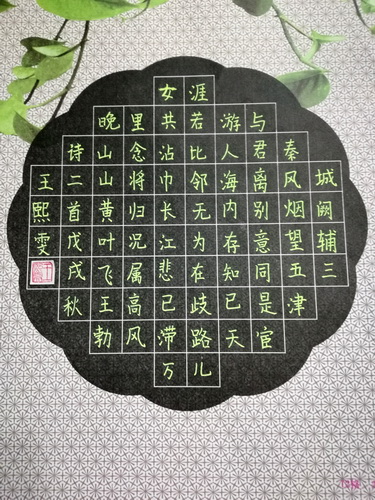 城阙辅三
秦风烟望五津
与君离别意同是宦
游人海内存知已天
涯若比邻无为在歧路儿
女共沾巾长江悲已滞万
里念将归况属高风
晚山山黄叶飞王勃
诗二首戊戌秋
王熙雯